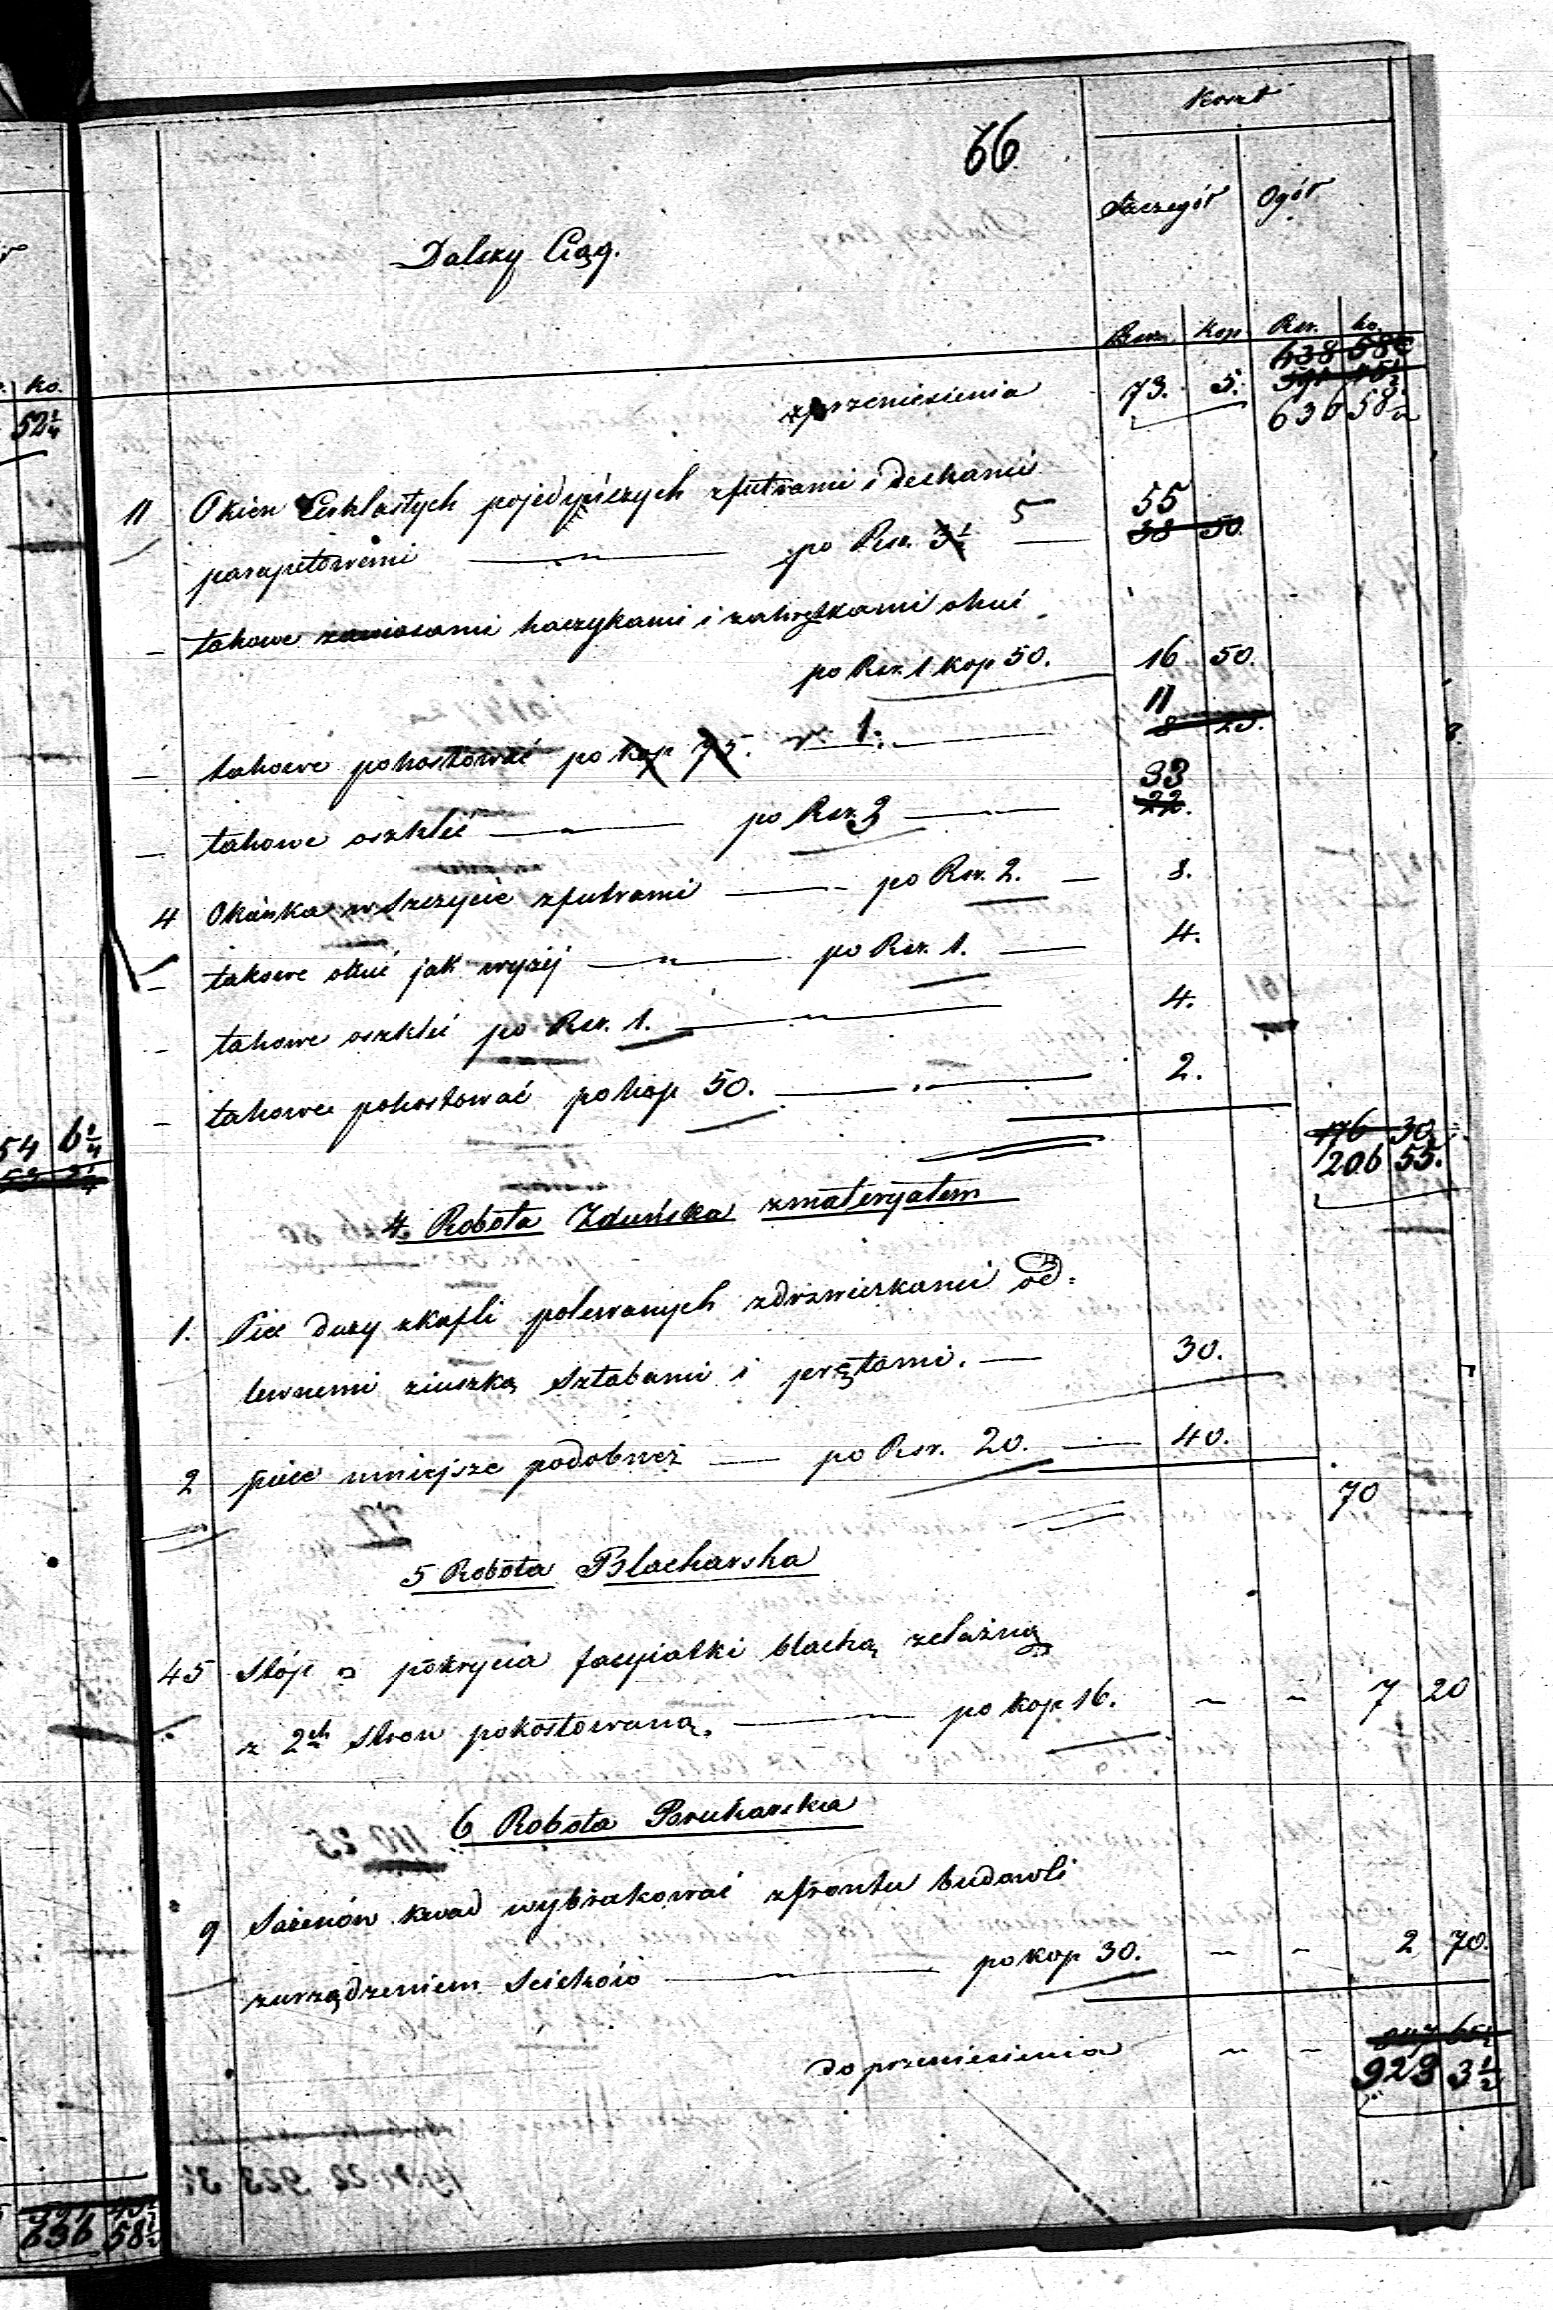 Koszt
66
Szczegół Ogół
Dalszy Ciąg.
Rsr. Kop. Rsr. ko.
438 58½
zprzeniesienia 73. 5. 591 45½
636 58½
11 Okien pojedyńczych zfutrami i deskami 55
parapetowemi — " — po Rsr. 3½ 5 — 38 50
- takowe zawiasami haczykami i zakrętkami okuć
po Rsr. 1 kop 50. 16 50.
11
- takowe pokostować po kop 75. r. 1. — 8 25.
33
- takowe oszklić — " — po Rsr. 3 — 22.
4 Okinka w Szczycie zfutrami — po Rsr. 2. — 8.
- takowe okuć jak wyżéj — " — po Rsr. 1. — 4.
- takowe oszklić po Rsr. 1. — " — 4.
- takowe pokostować po kop 50. — " — 2.
176 30
206 55.
4. Robota Zduńska zmateryałem
1. Piec duży zkafli polewanych zdrzwiczkami od=
lewnemi ziuszką Sztabami i prętami. — 30.
2 piece mniejsze podobneż — po Rsr. 20. — 40.
70
5 Robota Blacharska
45 Stóp □ pokrycia facyiatki blachą żelazną
z 2ch Stron pokostowaną. — po kop 16. - - 7 20
6 Robota Brukarska
9 Sążenów kwad wybrakować zfrontu budowli
zurządzeniem Scieków — " — po kop 30. - - 2 70.
do przeniesienia - - 847 65½
923 3½
ko.
52¼
54 6¼
636 58½